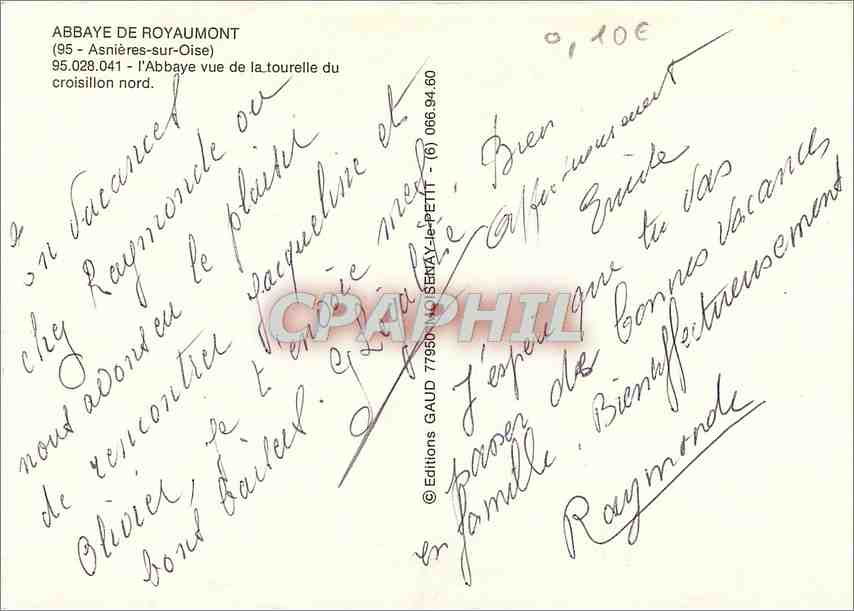 ABBAYE DE ROYAUMONT
(95 - Asnières-sur-Oise)
95.028.041 - l'Abbaye vue de la tourelle du
croisillon nord.
0,10€
© Editions GAUD 77950 MOISENAY-le-PETIT - (6) 066.94.60
CPAPHIL
En vacances
chez Raymonde ou
nous avons eu le plaisir
de rencontrer Jacqueline et
Olivier, je t'envoie mes
bons baisers.
Bien
affectueusement
J'espère que tu vas
passer des bonnes vacances
en famille. Bien affectueusement
Raymonde